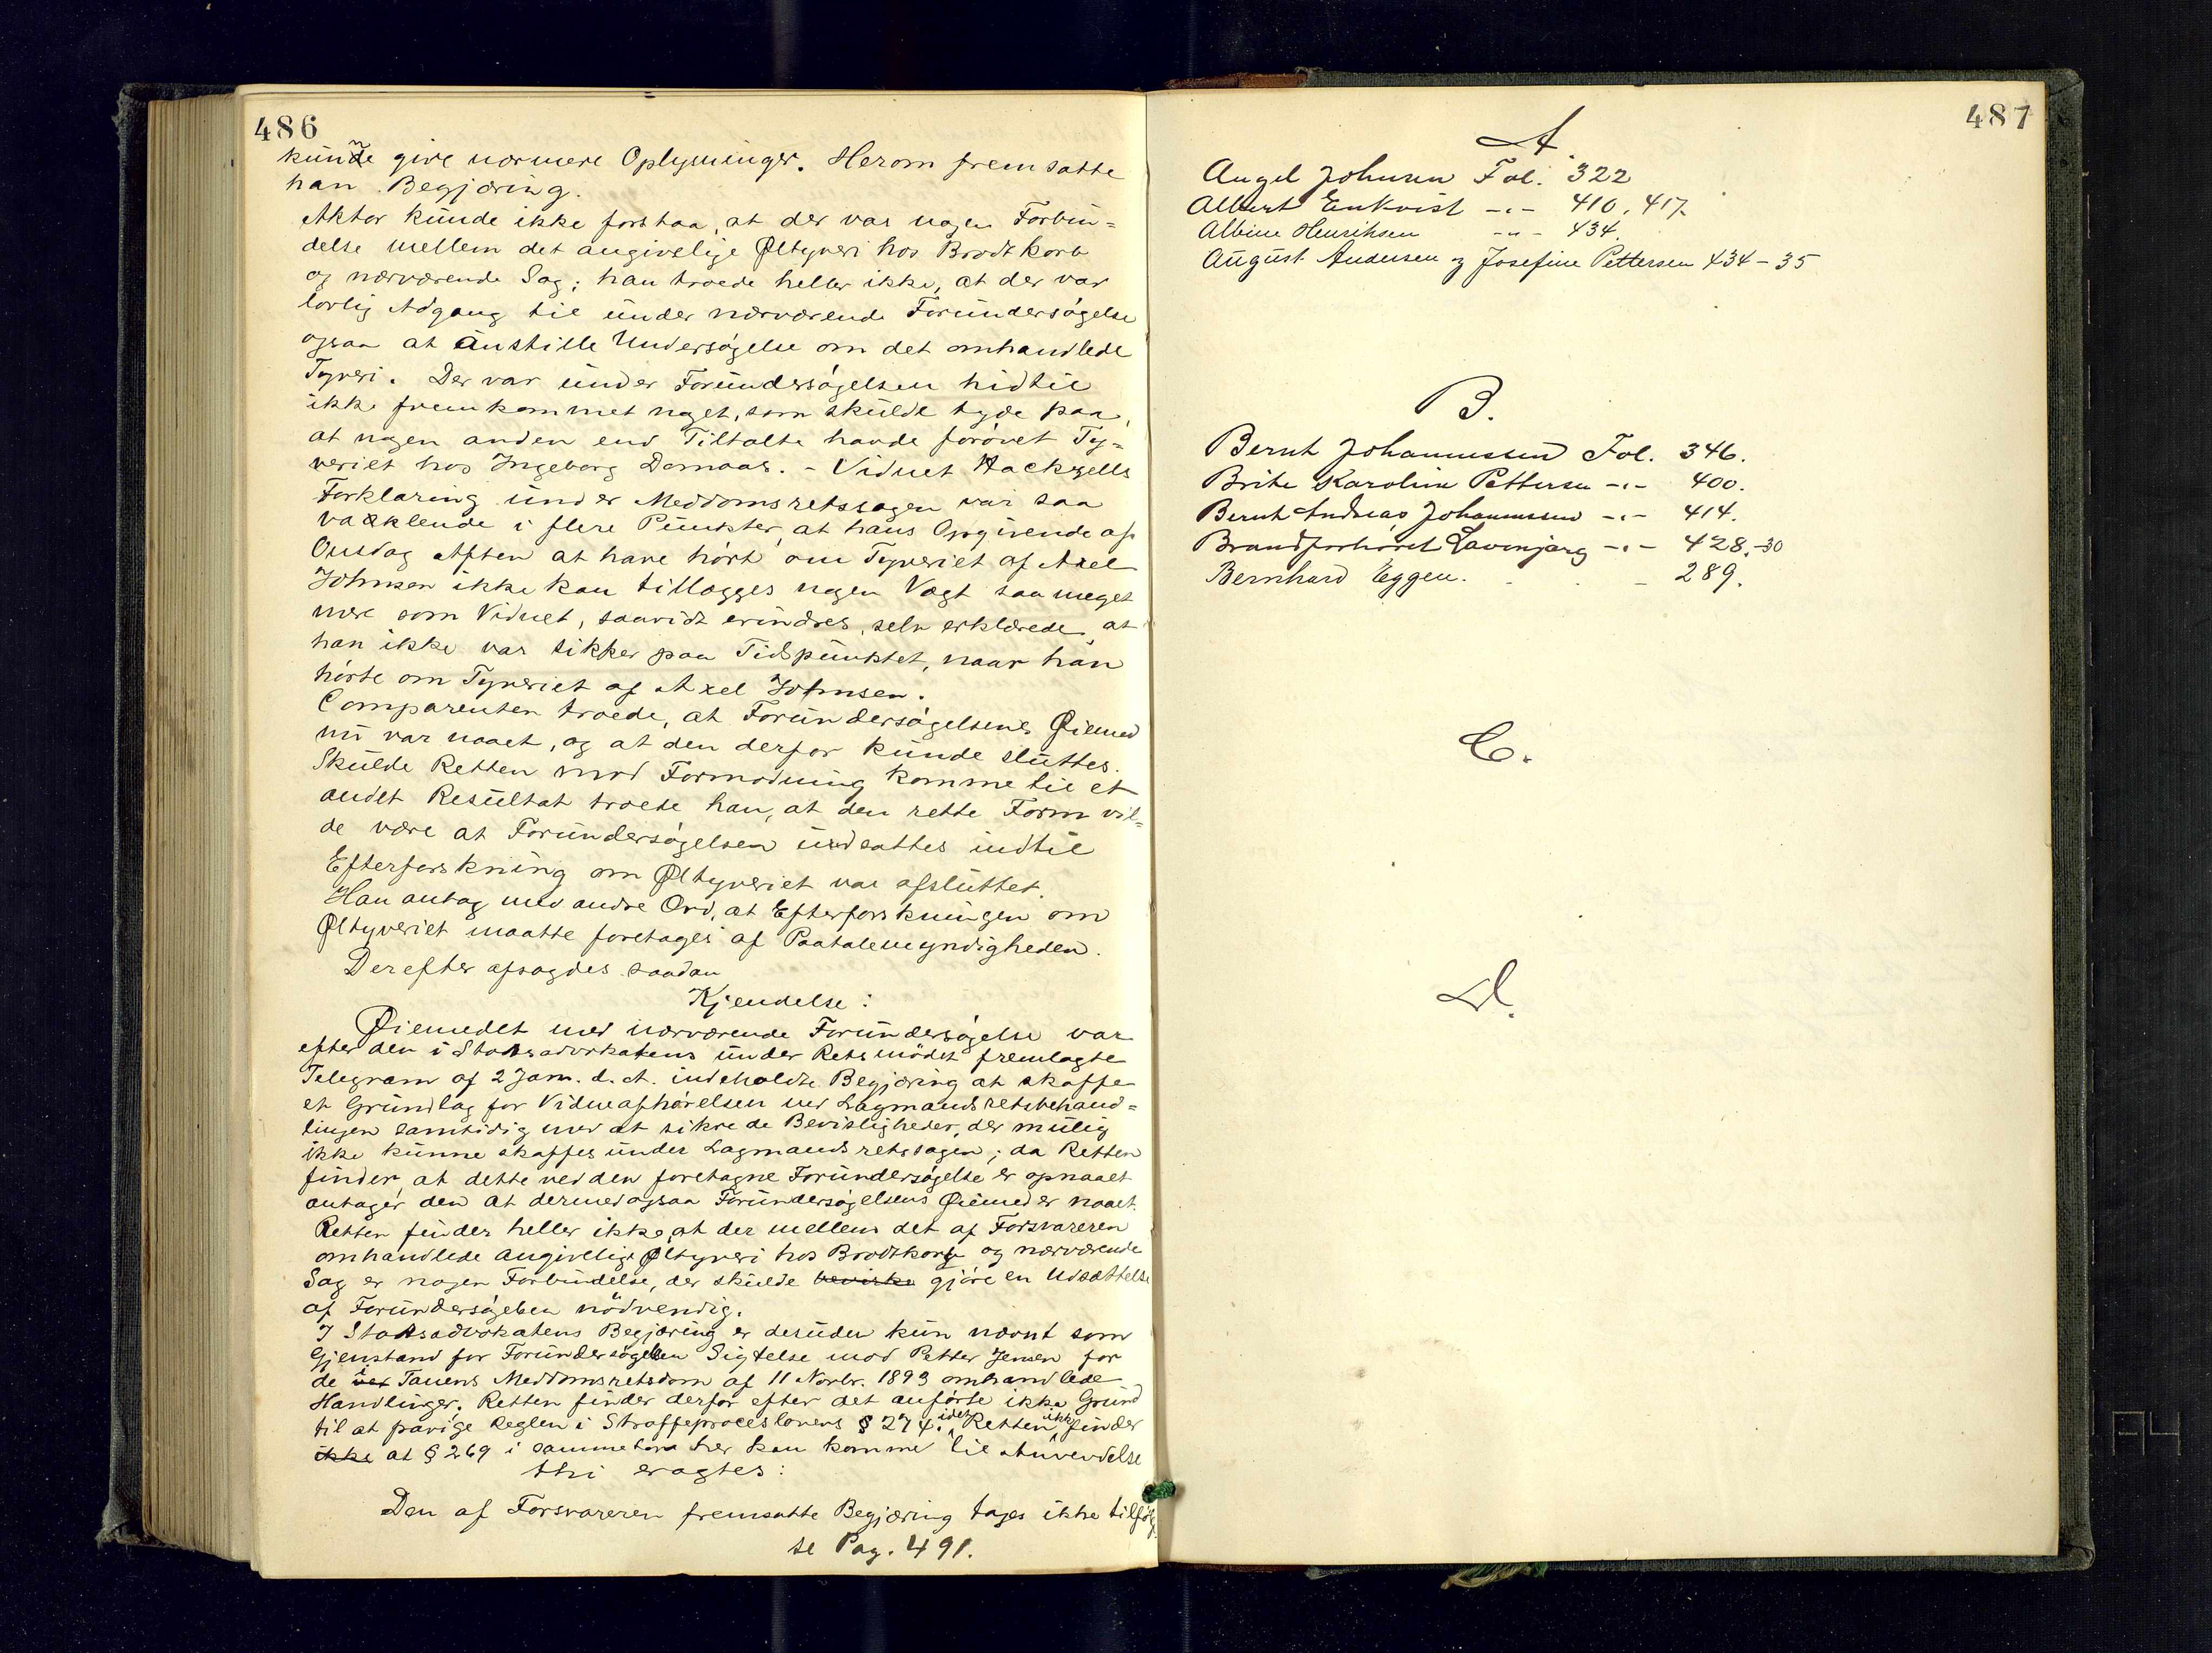 486
kunne give nærmere Oplysninger. Herom fremsatte
han Begjæring.
Aktor kunde ikke forstaa, at der var nogen Forbin=
delse mellem det angivelige Øltyveri hos Brodtkorb
og nærværende Sag; han troede heller ikke, at der var
lovlig Adgang til under nærværende Forundersøgelse
ogsaa at anstille Undersøgelse om det omhandlede
Tyveri. Der var under Forundersøgelsen hidtil
ikke fremkommet noget, som skulde tyde paa,
at nogen anden end Tiltalte havde forøvet Ty=
veriet hos Ingeborg Domaas. - Vidnet Hackzells
Forklaring under Meddomsretssagen var saa
vaklende i flere Punkter, at hans Opgivende af
Onsdag Aften at have hørt om Tyveriet af Axel
Johnsen ikke kan tillægges nogen Vægt saa meget
mere som Vidnet, saavidt erindres, selv erklærede, at
han ikke var sikker paa Tidspunktet, naar han
hørte om Tyveriet af Axel Johnsen.
Comparenten troede, at Forundersøgelsens Øiemed
nu var naaet, og at den derfor kunde sluttes.
Skulde Retten mod Formodning komme til et
andet Resultat troede han, at den rette Form vil=
de være at Forundersøgelsen udsattes indtil
Efterforskning om Øltyveriet var afsluttet.
Han antog med andre Ord, at Efterforskningen om
Øltyveriet maatte foretages af Paatalemyndigheden.
Derefter afsagdes saadan
Kjendelse:
Øiemedet med nærværende Forundersøgelse var
efter den i Statsadvokatens under Retsmødet fremlagte
Telegram af 2 Jan. d. A. indeholdte Begjæring at skaffe
et Grundlag for Vidneafhørelsen ved Lagmandsretsbehand=
lingen samtidig med at sikre de Bevisligheder, der mulig
ikke kunne skaffes under Lagmandsretssagen; da Retten
finder, at dette ved den foretagne Forundersøgelse er opnaaet
antager den at dermed ogsaa Forundersøgelsens Øiemed er naaet.
Retten finder heller ikke, at der mellem det af Forsvareren
omhandlede angivelige Øltyveri hos Brodtkorb og nærværende
Sag er nogen Forbindelse, der skulde bevirke gjøre en Udsættelse
af Forundersøgelsen nödvendig.
I Statsadvokatens Begjæring er desuden kun nævnt som
Gjenstand for Forundersøgelsen Sigtelse mod Petter Jensen for
de i Tanens Meddomsretsdom af 11 Novbr. 1893 omhandlede
Handlinger. Retten finder derfor efter det anførte ikke Grund
til at fravige Reglen i Straffeproceslovens § 274. idet Retten ikke finder
ikke at § 269 i samme Lov her kan komme til Anvendelse
thi eragtes:
Den af Forsvareren fremsatte Begjæring tages ikke tilfølge.
se Pag. 491.
487
A.
Angel Johnsen Fol. 322
Albert Enkvist -"- 410, 417.
Albine Henriksen -"- 434.
August Andersen og Josefine Pettersen 434-35
B.
Bernt Johannessen Fol. 346.
Brite Karoline Pettersen -"- 400.
Bernt Andreas Johannessen -"- 414.
Brandforhøret Lavonjarg -"- 428.-30
Bernhard Eggen. - 289.
C.
D.